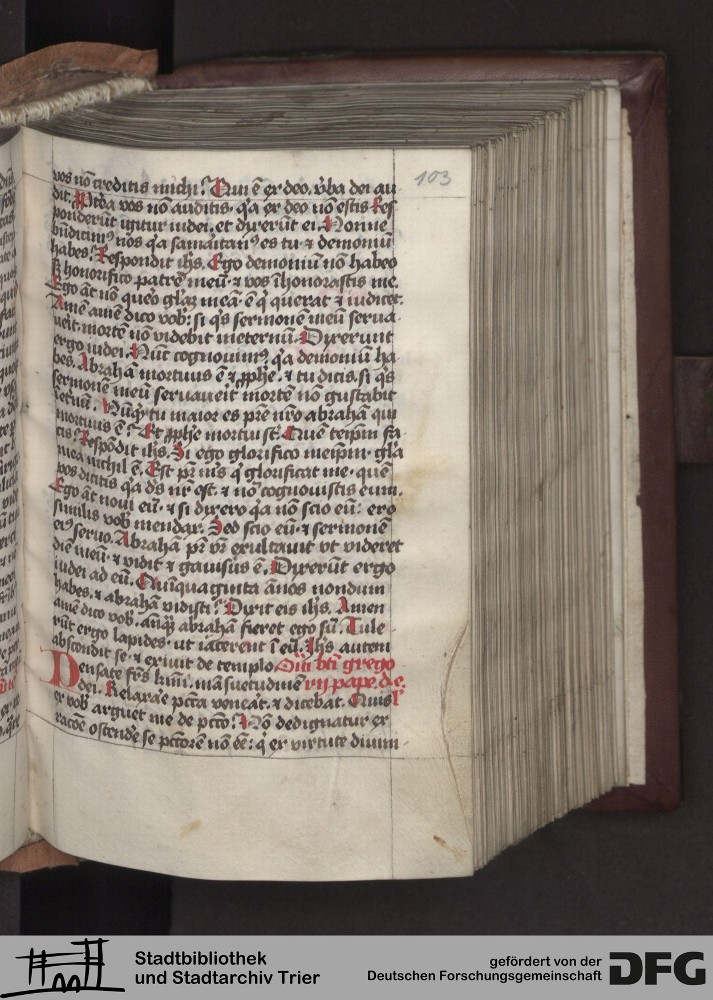 103
vos nō creditis michi? Qui ē ex deo. v̓ba dei au
dit. Ptēa vos nō auditis. q̓a ex deo nō estis Res
ponderūt igitur iudei. et dixerūt ei. Nonne
bn̄dicimꝰ nos q̓a samaritanꝰ es tu ⁊ demoniū
habes? Respondit ihs. Ego demoniū nō habeo
sꝫ honorifico patrē meū ⁊ vos īhonorastis me.
Ego āt nō quero gl̄az meā. ē q̓ querat ⁊ iudicet.
Amē amē dico vob̄: si q̓s sermonē meū serua
ueit. mortē nō videbit ineternū. Dixerunt
ergo iudei. Nūc cognouimꝰ q̓a demoniū ha
bes. Abrahā mortuus ē ⁊ ꝓphē. ⁊ tu dicis. si q̓s
sermonē meū seruaueit mortē nō gustabit
ī etnū. Nūq̓ꝫ tu maior es prē nr̄o abrahā qui
mortuus ē? Et ꝓphē mortui st̄. Quē teip̄m fa
cis? Respōdit ihs. Si ego glorifico meip̄m. gl̄a
mea nichil ē. Est pr̄ mꝰs q̓ glorificat me. quē
vos dicitis q̓a ds̄ nr̄ ꝗst. ⁊ nō cognouistis eum.
Ego āt noui eū. ⁊ si dixero q̓a nō scio eū: ero
similis vob̄ mendax. Sed scio eū ⁊ sermonē
eiꝰ seruo. Abrahā pr̄ vr̄ exultauit vt videret
diē meū. ⁊ vidit ⁊ gauisus ē. Dixerūt ergo
iudei ad eū. Quīquaginta ānos nondum
habes. ⁊ abrahā vidisti? Dixit eis ihs. Amen
amē dico vob̄. ānq̄ꝫ abrahā fieret ego sū. Tule
rūt ergo lapides. ut iacerent ī eū. Ihs autem
abscondit se. ⁊ exiuit de templo. Om̄ bt̄i grego
Densate frēs kmī. māsuetudinē rij pape. de.
dei. Relaxare pctā veneāt. ⁊ dicebat. Quis l
ex vob̄ arguet me de pctō? Nō dedignatur ex
racōe ostende se pctorē nō eē: q̓ ex virtute diuini
Stadtbibliothek
und Stadtarchiv Trier
gefördert von der
Deutschen Forschungsgemeinschaft
DFG